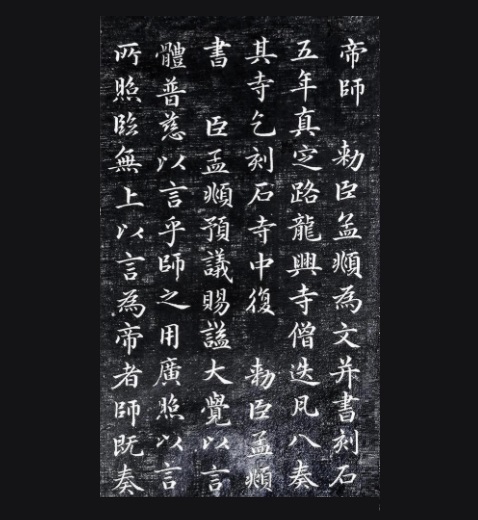 帝師　勑臣孟頫為文并書刻石
五年真定路龍興寺僧迭凡八奏
其寺乞刻石寺中復　勑臣孟頫
書　臣孟頫預議賜謚大覺以言
體普慈以言乎師之用廣照以言
所照臨無上以言為帝者師既奏